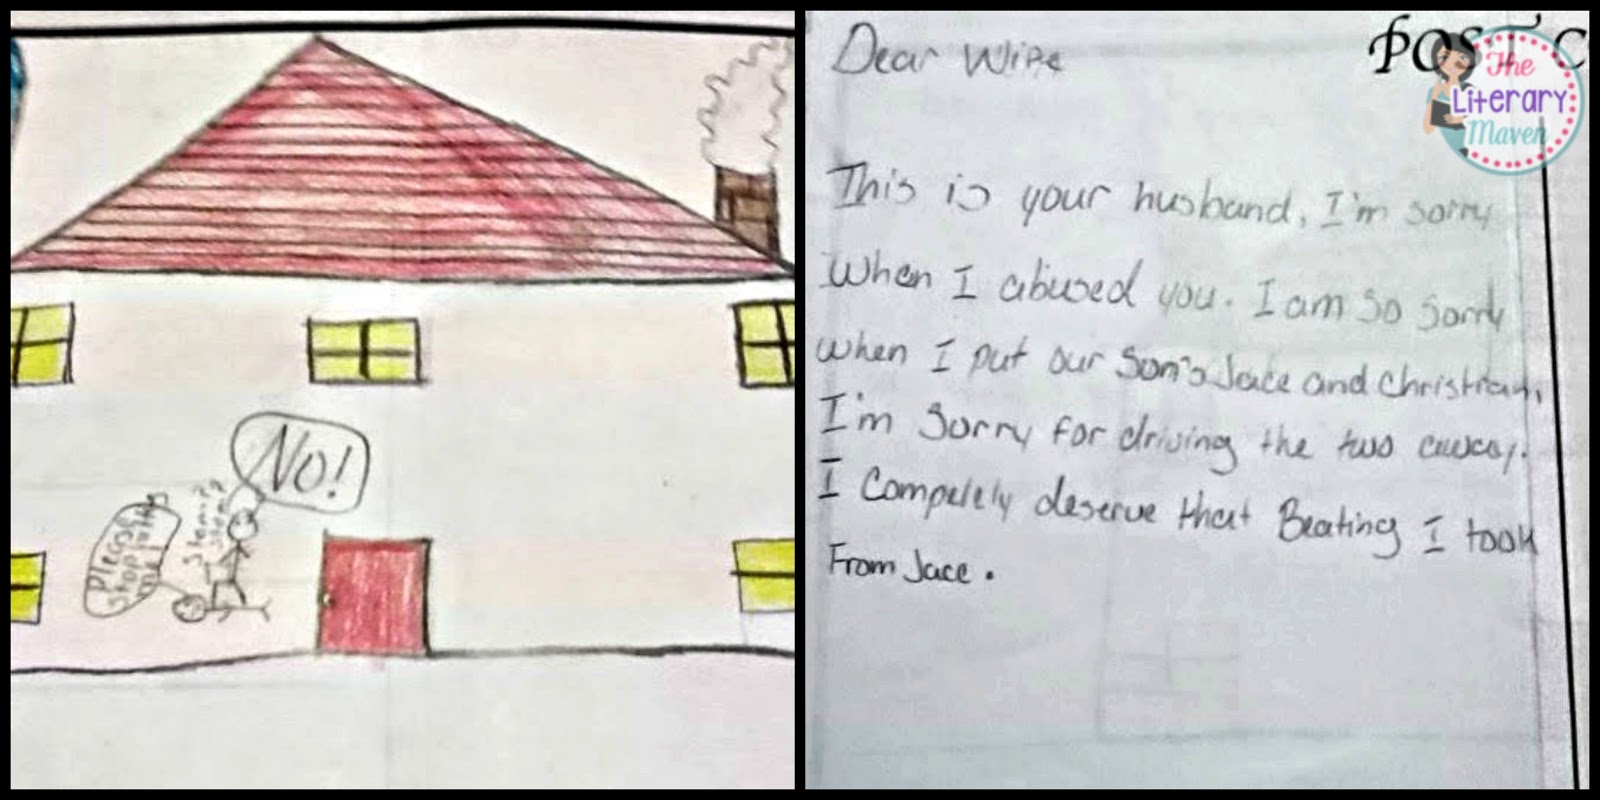 No!
Please
stop
me
Stomp
Stomp
Dear Wife
POST C
The
Literary
Maven
This is your husband, I'm sorry
When I abused you. I am so sorry
when I put our Son's Jace and Christian,
I'm sorry for driving the two away.
I Compelely deserve that Beating I took
From Jace.